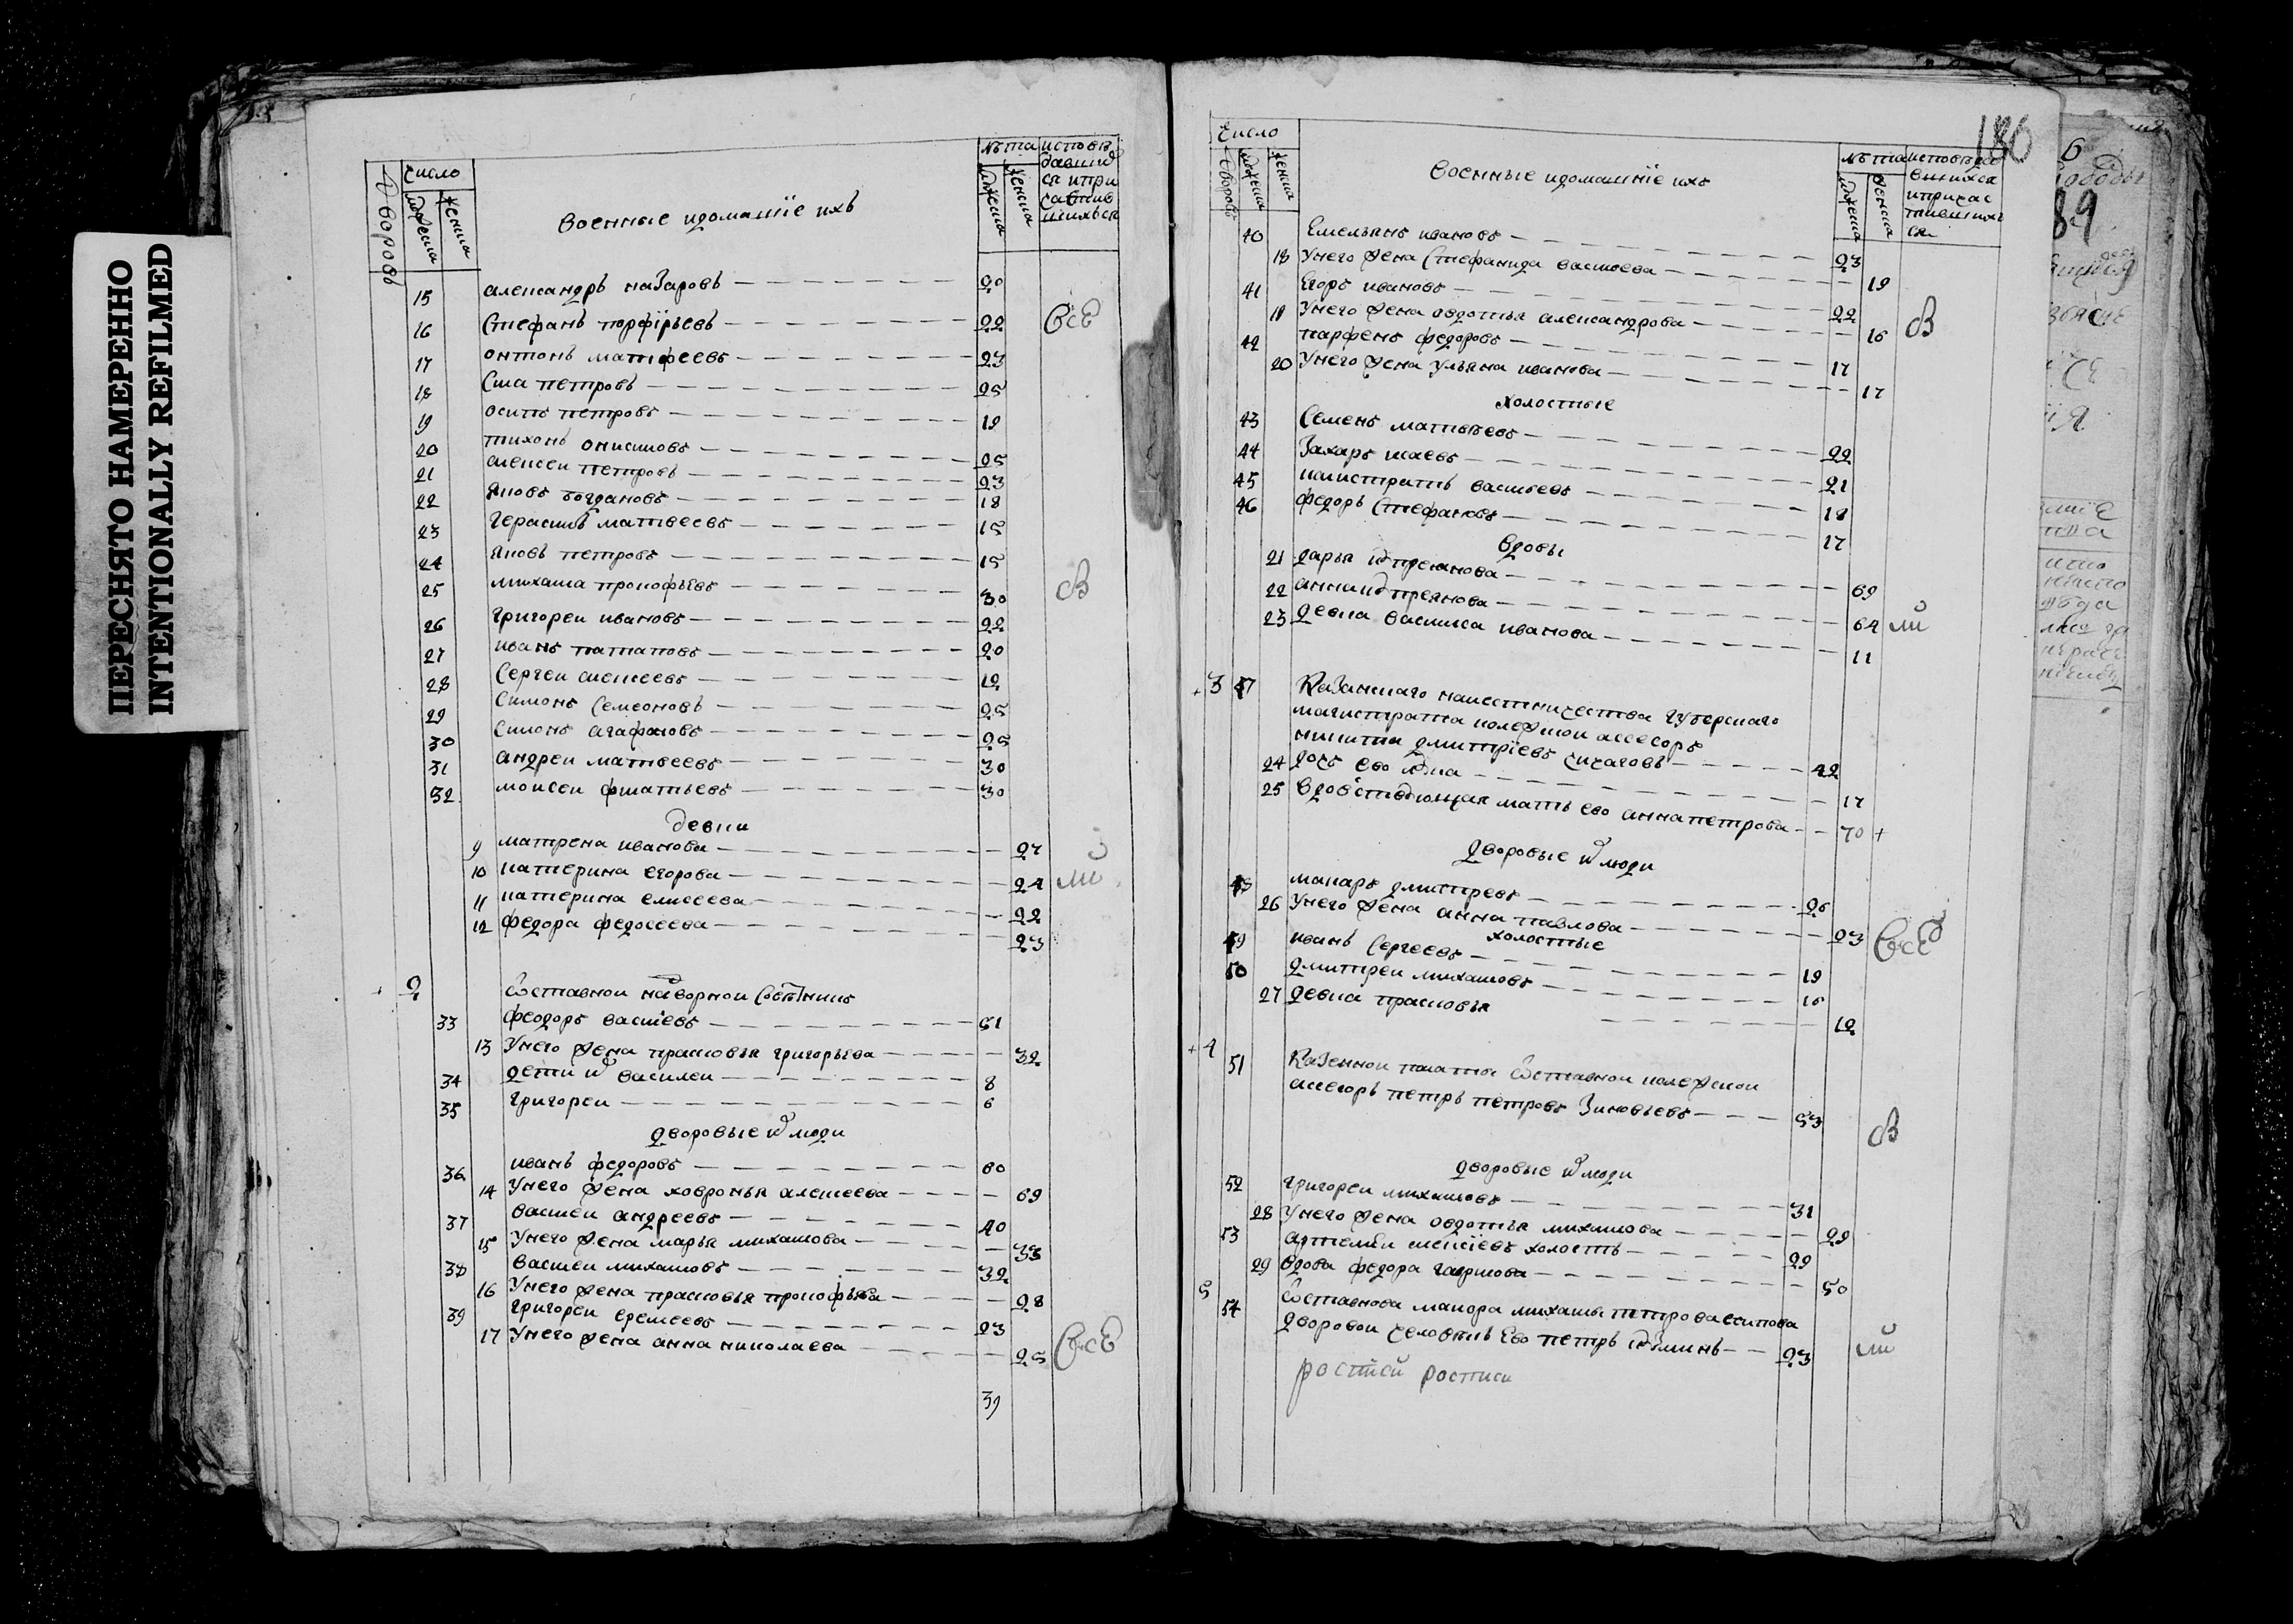 ПЕРЕСНЯТО НАМЕРЕННО
INTENTIONALLY REFILMED
число
дворовъ
мужеска
женска
военные идомашнїе ихъ
лѣта
мужеска
женска
исповѣ
давших
ся ипри
частив
шихься
15 александръ наЗаровъ 20
16 Стефанъ порфїрьевъ 22 Всѣ
17 онтонъ матфеевъ 23
18 Сила петровъ 25
19 осипъ петровъ 19
20 тихонъ онисимовъ 25
21 алексеи петровъ 23
22 яковъ богдановъ 18
23 герасимъ матвеевъ 15
24 яковъ петровъ 15
25 михаила прокофьевъ 30
26 григореи ивановъ 22
27 иванъ патаповъ 20
28 Сергеи алексеевъ 19
29 Симонъ Семеоновъ 25
30 Симонъ агафоновъ 25
31 андреи матвеевъ 30
32 моисеи филатьевъ 30
девки
9 матрена иванова 27
10 катерина егорова 24
11 катерина елисеева 22
12 федора федосеева 23
2 Wставнои надворнои Советникъ
33 феодоръ васильевъ 51
13 Унего жена прасковья григорьева 32
34 дети их василеи 8
35 григореи 6
дворовые их люди
36 иванъ федоровъ 60
14 Унего жена ховронья алексеева 69
37 василеи андреевъ 40
15 Унего жена марья михаилова 33
38 василеи михаиловъ 32
16 Унего жена прасковья прокофьева 28
39 григореи еремеевъ 23
17 Унего жена анна николаева 25 Всѣ
39
186
число
дворовъ
мужеска
женска
военные идомашнїе ихъ
лѣта
мужеска
женска
исповѣдо
вшихся
ипричас
тившихъ
ся
40 Емельянъ ивановъ 23
18 Унего жена Стефанида васильева 19
41 Егоръ ивановъ 22
19 Унего жена овдотья александрова 16
42 парфенъ федоровъ 17
20 Унего жена Ульяна иванова 17
холостые
43 Семенъ матвеевъ 22
44 Захаръ исаевъ 21
45 калистратъ васильевъ 18
46 федоръ Стефановъ 17
вдовы
21 дарья куприянова 69
22 анна куприянова 64
23 девка василиса иванова 11
3 47 КаЗанскаго наместничества губернскаго
магистрата колежскои ассесоръ
никита дмитрїевъ чичаговъ 42
24 дочь ево 17
25 вдовствующая мать ево анна петрова 70 +
дворовые их люди
48 макаръ дмитревъ 26
26 Унего жена анна павлова 23 Всѣ
холостые
49 иванъ Сергеевъ 19
50 дмитреи михаиловъ 16
27 девка прасковья 19
4 51 КаЗеннои палаты Wставнои колежскои
ассесоръ петръ петровъ Зиновьевъ 53
дворовые их люди
52 григореи михаиловъ 31
28 Унего жена овдотья михаилова 29
53 артемеи алексїевъ холостъ 29
29 вдова федора гаврилова 50
5 Wставнова маиора михаилы петрова есипова
54 дворовои человекъ Ево петръ кузминъ 23